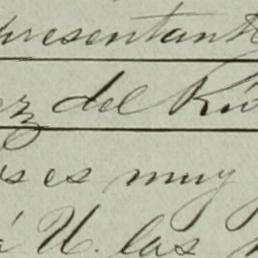 presentant
ez del Rio
es muy
á U. las